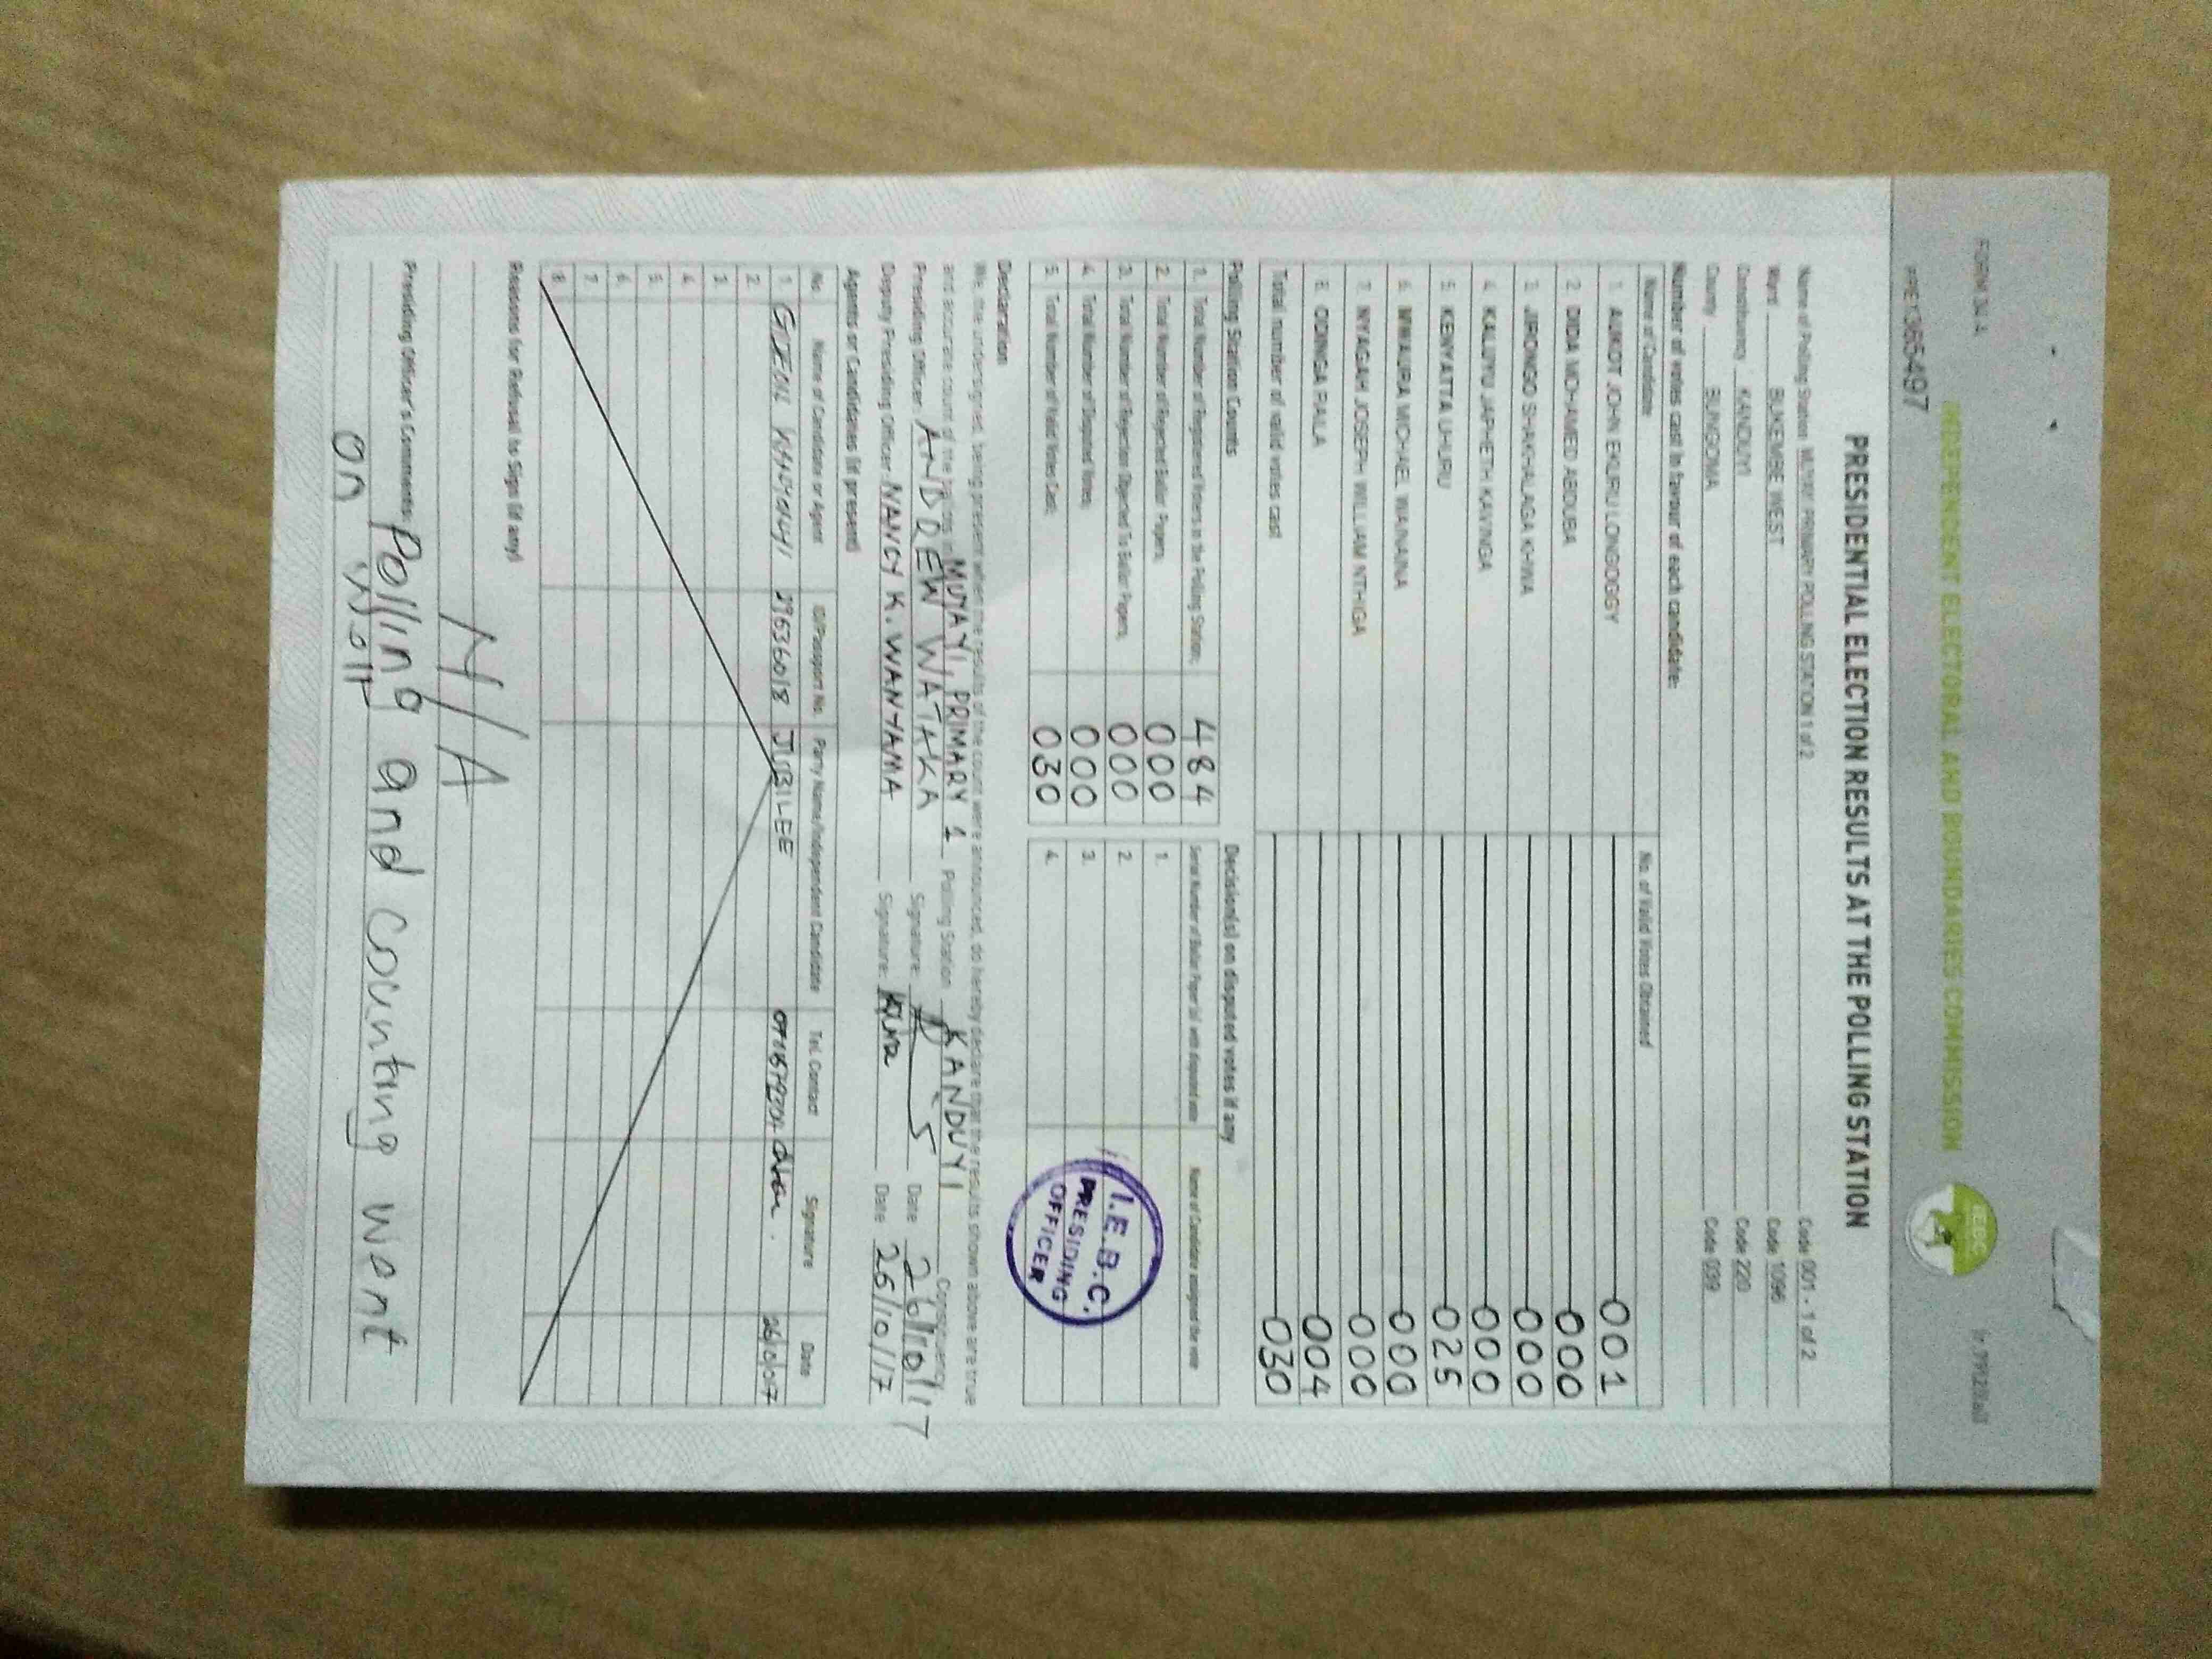 FORM 34 A
INDEPENDENT ELECTORAL AND BOUNDARIES COMMISSION
IEBC
PRESIDENTIAL ELECTION RESULTS AT THE POLLING STATION
Name of Polling Station MUYAYI PRIMARY POLLING STATION 1 of 2 Code 001 - 1 of 2
Ward BUKEMBE WEST Code 1096
Constituency KANDUYI Code 220
County BUNGOMA Code 039
Number of votes cast in favour of each candidate:
Name of Candidate No. of Valid Votes Obtained
1. AUKOT JOHN EKURU LONGOGGY 001
2. DIDA MOHAMED ABDUBA 000
3. JIRONGO SHAKHALAGA KHWA 000
4. KALUYU JAPHETH KAVINGA 000
5. KENYATTA UHURU 025
6. MWAURA MICHAEL WAINAINA 000
7. NYAGAH JOSEPH WILLIAM NTHIGA 000
8. ODINGA RAILA 004
Total number of valid votes cast 030
Polling Station Counts
1. Total Number of Registered Voters in the Polling Station; 484
2. Total Number of Rejected Ballot Papers; 000
3. Total Number of Rejection Objected To Ballot Papers; 000
4. Total Number of Disputed Votes; 000
5. Total Number of Valid Votes Cast; 030
Decision(s) on disputed votes if any
Serial Number of Ballot Paper(s) with disputed vote Name of Candidate assigned the vote
1.
2.
3.
4.
I.E.B.C.
PRESIDING
OFFICER
Declaration
We, the undersigned, being present when the results of the count were announced, do hereby declare that the results shown above are true
and accurate count of the ballots in MUYAYI PRIMARY 1 Polling Station KANDUYI Constituency
Presiding Officer: ANDREW WATAKA Signature: Date 26/10/17
Deputy Presiding Officer NANCY K. WANYAMA Signature: Date 26/10/17
Agents or Candidates (if present)
No. Name of Candidate or Agent ID/Passport No. Party Name/Independent Candidate Tel. Contact Signature Date
1. 29636018 JUBILEE
2
3
4
5
6
7
8
Reasons for Refusal to Sign (if any)
N/A
Presiding Officer's Comments: Polling and counting went
on well